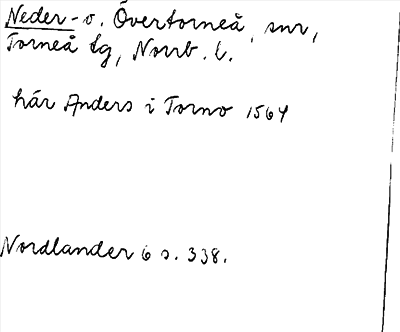 Neder- o. Övertorneå, snr,
Torneå tg, Norrb. l.
här Anders i Torno 1564
Nordlander 6 s. 338.